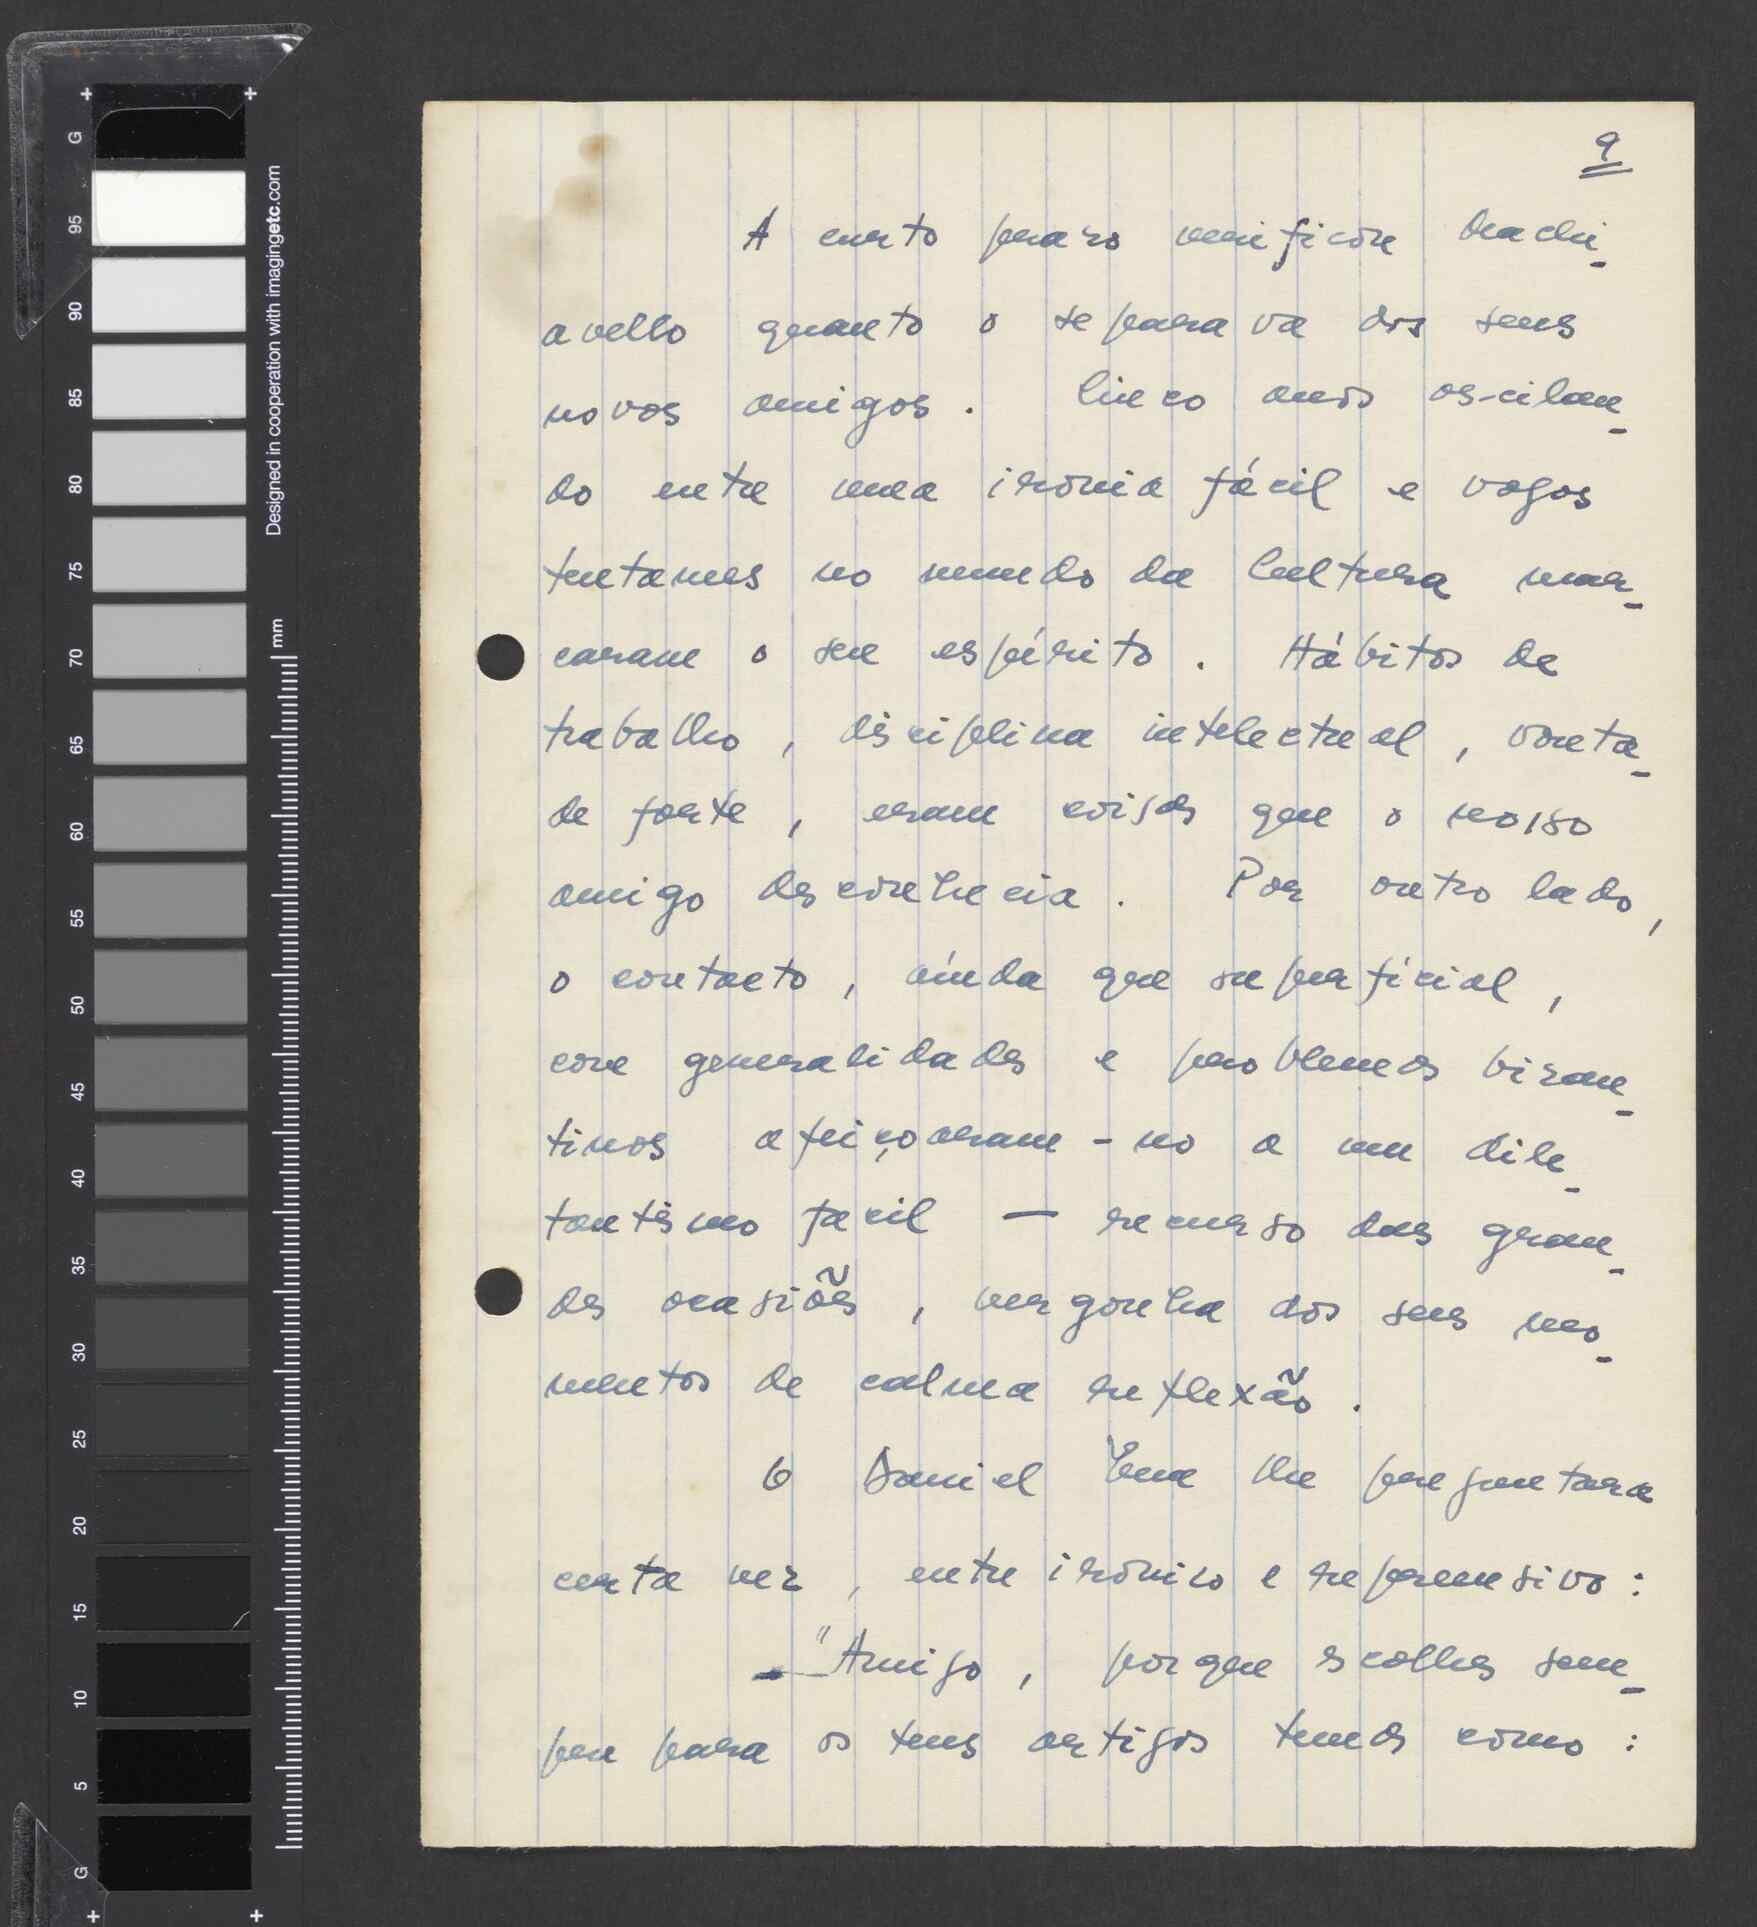 9
A curto prazo verificou Machi-
avello quanto o separava dos seus
novos amigos. Cinco anos oscilan-
do entre uma ironia fácil e vagos
tentames no mundo da Cultura mar-
caram o seu espírito. Hábitos de
trabalho, disciplina intelectual, vonta-
de forte, eram coisas que o nosso
amigo desconhecia. Por outro lado,
o contacto, aínda que superficial,
com generalidades e problemas bizan-
tinos afeiçoaram-no a um dile-
tantismo facil — recurso das gran-
des ocasiões, vergonha dos seus mo-
mentos de calma reflexão.
O Daniel lhe preguntara
certa vez, entre irónico e repreensivo:
- "Amigo, porque escolhes sem-
pre para os teus artigos temas como:
Designed in cooperation with imagingetc.com
mm
G
95
90
85
80
75
70
65
60
55
50
45
40
35
30
25
20
15
10
5
G